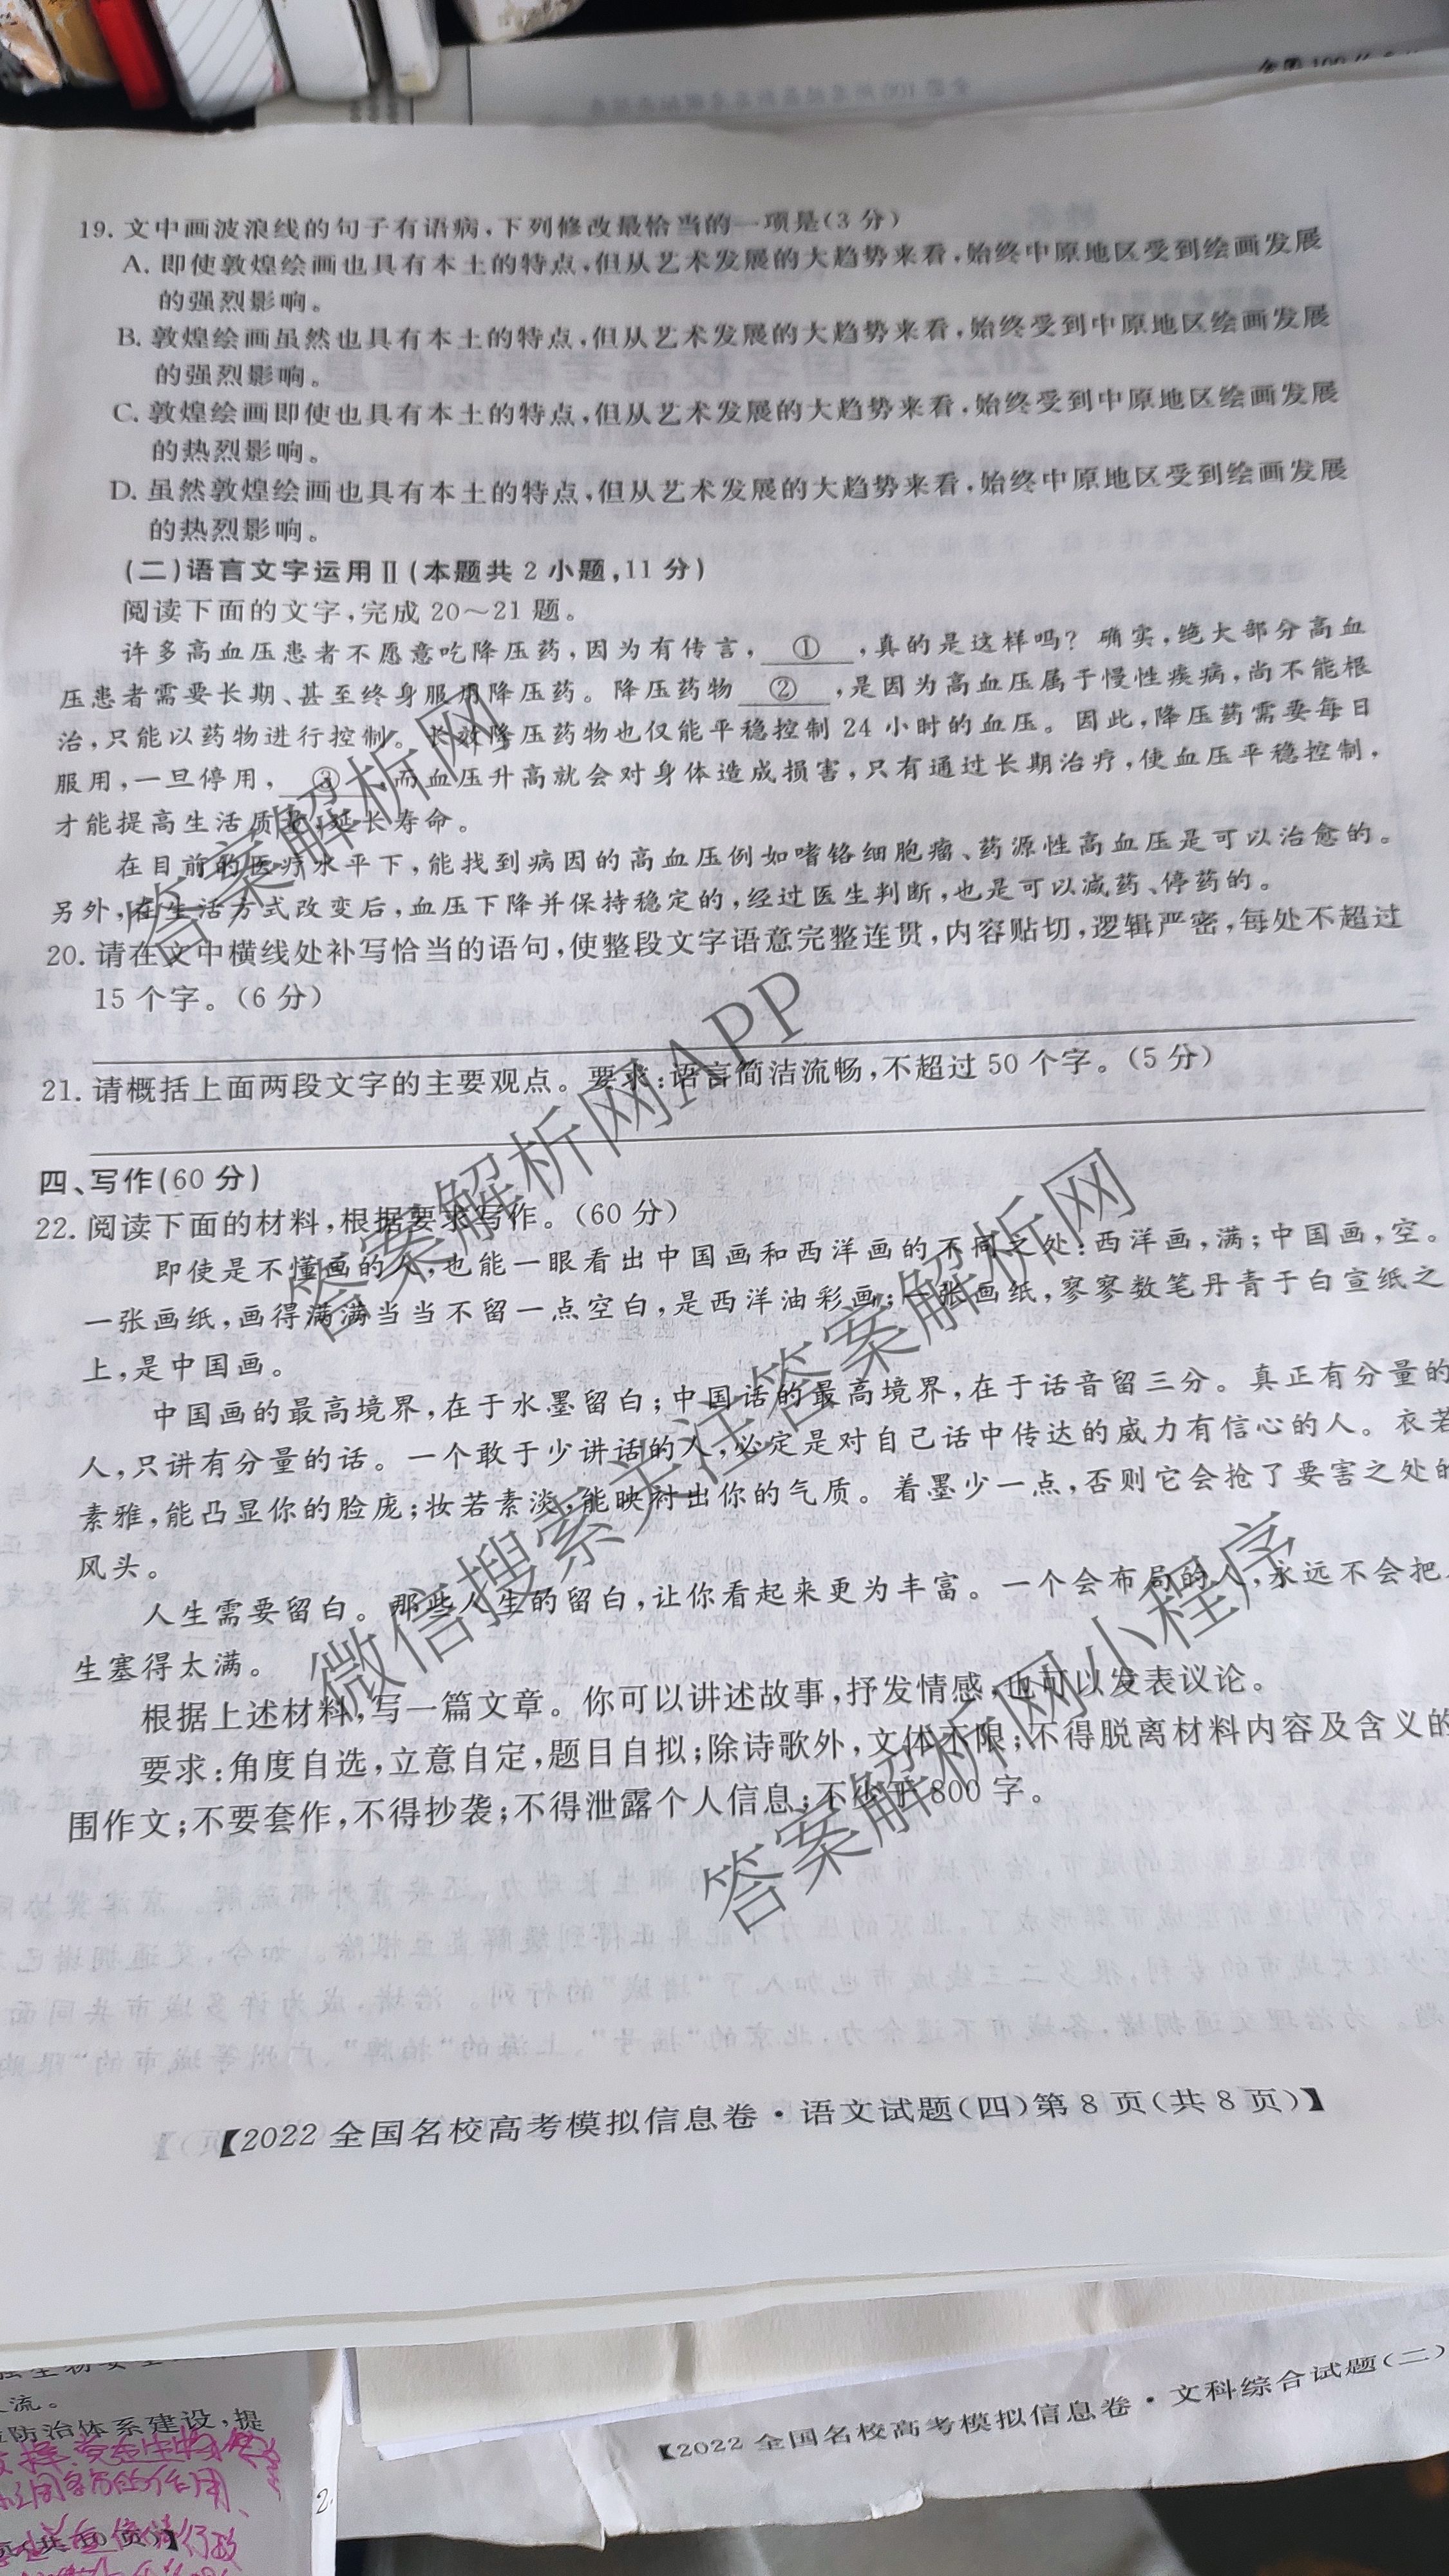 19. 文中画波浪线的句子有语病,下列修改最恰当的一项是(3 分)
A. 即使敦煌绘画也具有本土的特点,但从艺术发展的大趋势来看,始终中原地区受到绘画发展
的强烈影响。
B. 敦煌绘画虽然也具有本土的特点,但从艺术发展的大趋势来看,始终受到中原地区绘画发展
的强烈影响。
C. 敦煌绘画即使也具有本土的特点,但从艺术发展的大趋势来看,始终受到中原地区绘画发展
的热烈影响。
D. 虽然敦煌绘画也具有本土的特点,但从艺术发展的大趋势来看,始终中原地区受到绘画发展
的热烈影响。
(二)语言文字运用Ⅱ(本题共 2 小题,11 分)
阅读下面的文字,完成 20～21 题。
许多高血压患者不愿意吃降压药,因为有传言, ① ,真的是这样吗? 确实,绝大部分高血
压患者需要长期、甚至终身服用降压药。降压药物 ② ,是因为高血压属于慢性疾病,尚不能根
治,只能以药物进行控制。长效降压药物也仅能平稳控制 24 小时的血压。因此,降压药需要每日
服用,一旦停用, ③ ,而血压升高就会对身体造成损害,只有通过长期治疗,使血压平稳控制,
才能提高生活质量,延长寿命。
在目前的医疗水平下,能找到病因的高血压例如嗜铬细胞瘤、药源性高血压是可以治愈的。
另外,在生活方式改变后,血压下降并保持稳定的,经过医生判断,也是可以减药、停药的。
20. 请在文中横线处补写恰当的语句,使整段文字语意完整连贯,内容贴切,逻辑严密,每处不超过
15 个字。(6 分)
21. 请概括上面两段文字的主要观点。要求:语言简洁流畅,不超过 50 个字。(5 分)
四、写作(60 分)
22. 阅读下面的材料,根据要求写作。(60 分)
即使是不懂画的人,也能一眼看出中国画和西洋画的不同之处:西洋画,满;中国画,空。
一张画纸,画得满满当当不留一点空白,是西洋油彩画;一张画纸,寥寥数笔丹青于白宣纸之
上,是中国画。
中国画的最高境界,在于水墨留白;中国话的最高境界,在于话音留三分。真正有分量的
人,只讲有分量的话。一个敢于少讲话的人,必定是对自己话中传达的威力有信心的人。衣若
素雅,能凸显你的脸庞;妆若素淡,能映衬出你的气质。着墨少一点,否则它会抢了要害之处的
风头。
人生需要留白。那些人生的留白,让你看起来更为丰富。一个会布局的人,永远不会把
生塞得太满。
根据上述材料,写一篇文章。你可以讲述故事,抒发情感,也可以发表议论。
要求:角度自选,立意自定,题目自拟;除诗歌外,文体不限;不得脱离材料内容及含义的
围作文;不要套作,不得抄袭;不得泄露个人信息;不少于 800 字。
答案解析网
答案解析网APP
微信搜索关注答案解析网
答案解析网小程序
【2022 全国名校高考模拟信息卷·语文试题(四)第 8 页(共 8 页)】
流。
防治体系建设,提
【2022 全国名校高考模拟信息卷·文科综合试题(二)